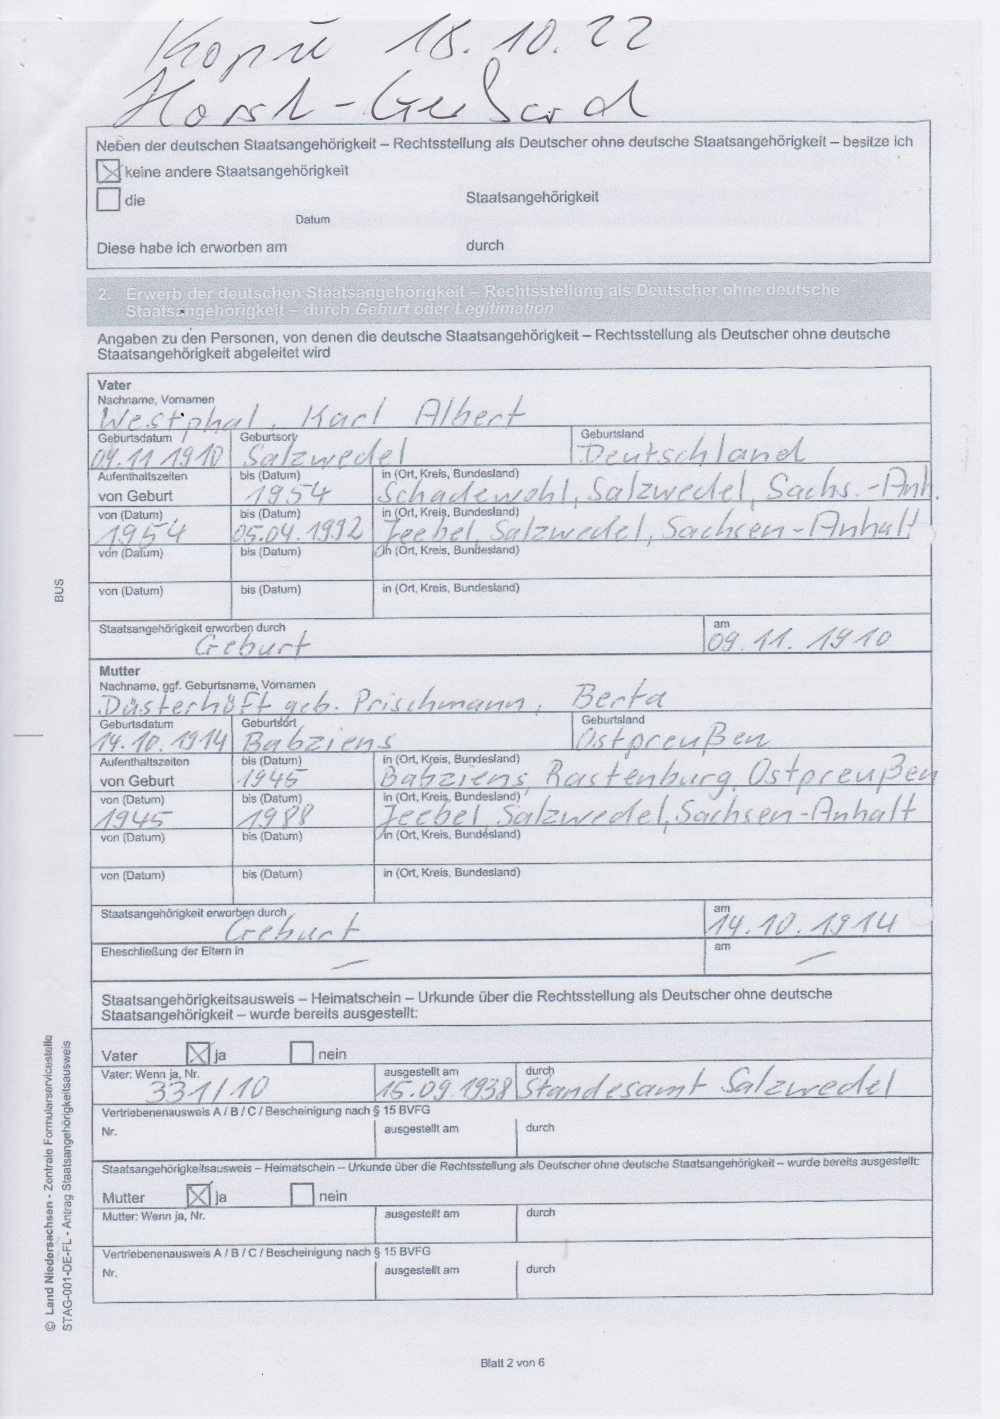 Kopie 18.10.22
Horst-Gerhard
Neben der deutschen Staatsangehörigkeit – Rechtsstellung als Deutscher ohne deutsche Staatsangehörigkeit – besitze ich
keine andere Staatsangehörigkeit
die Staatsangehörigkeit
Datum
Diese habe ich erworben am durch
2. Erwerb der deutschen Staatsangehörigkeit – Rechtsstellung als Deutscher ohne deutsche
Staatsangehörigkeit – durch Geburt oder Legitimation
Angaben zu den Personen, von denen die deutsche Staatsangehörigkeit – Rechtsstellung als Deutscher ohne deutsche
Staatsangehörigkeit abgeleitet wird
Vater
Nachname, Vornamen
Westphal, Karl Albert
Geburtsdatum Geburtsort Geburtsland
09.11.1910 Salzwedel Deutschland
Aufenthaltszeiten bis (Datum) in (Ort, Kreis, Bundesland)
von Geburt 1954 Schadewohl, Salzwedel, Sachs.-Anh.
von (Datum) bis (Datum) in (Ort, Kreis, Bundesland)
1954 05.04.1992 Jeebel, Salzwedel, Sachsen-Anhalt
von (Datum) bis (Datum) in (Ort, Kreis, Bundesland)
von (Datum) bis (Datum) in (Ort, Kreis, Bundesland)
Staatsangehörigkeit erworben durch am
Geburt 09.11.1910
Mutter
Nachname, ggf. Geburtsname, Vornamen
Düsterhöft geb. Prischmann, Berta
Geburtsdatum Geburtsort Geburtsland
14.10.1914 Babziens Ostpreußen
Aufenthaltszeiten bis (Datum) in (Ort, Kreis, Bundesland)
von Geburt 1945 Babziens, Rastenburg, Ostpreußen
von (Datum) bis (Datum) in (Ort, Kreis, Bundesland)
1945 1988 Jeebel, Salzwedel, Sachsen-Anhalt
von (Datum) bis (Datum) in (Ort, Kreis, Bundesland)
von (Datum) bis (Datum) in (Ort, Kreis, Bundesland)
Staatsangehörigkeit erworben durch am
Geburt 14.10.1914
Eheschließung der Eltern in am
— —
Staatsangehörigkeitsausweis – Heimatschein – Urkunde über die Rechtsstellung als Deutscher ohne deutsche
Staatsangehörigkeit – wurde bereits ausgestellt:
Vater ja nein
Vater: Wenn ja, Nr. ausgestellt am durch
331/10 15.09.1938 Standesamt Salzwedel
Vertriebenenausweis A / B / C / Bescheinigung nach § 15 BVFG
Nr. ausgestellt am durch
Staatsangehörigkeitsausweis – Heimatschein – Urkunde über die Rechtsstellung als Deutscher ohne deutsche Staatsangehörigkeit – wurde bereits ausgestellt:
Mutter ja nein
Mutter: Wenn ja, Nr. ausgestellt am durch
Vertriebenenausweis A / B / C / Bescheinigung nach § 15 BVFG
Nr. ausgestellt am durch
BUS
© Land Niedersachsen - Zentrale Formularservicestelle
STAG-001-DE-FL - Antrag Staatsangehörigkeitsausweis
Blatt 2 von 6